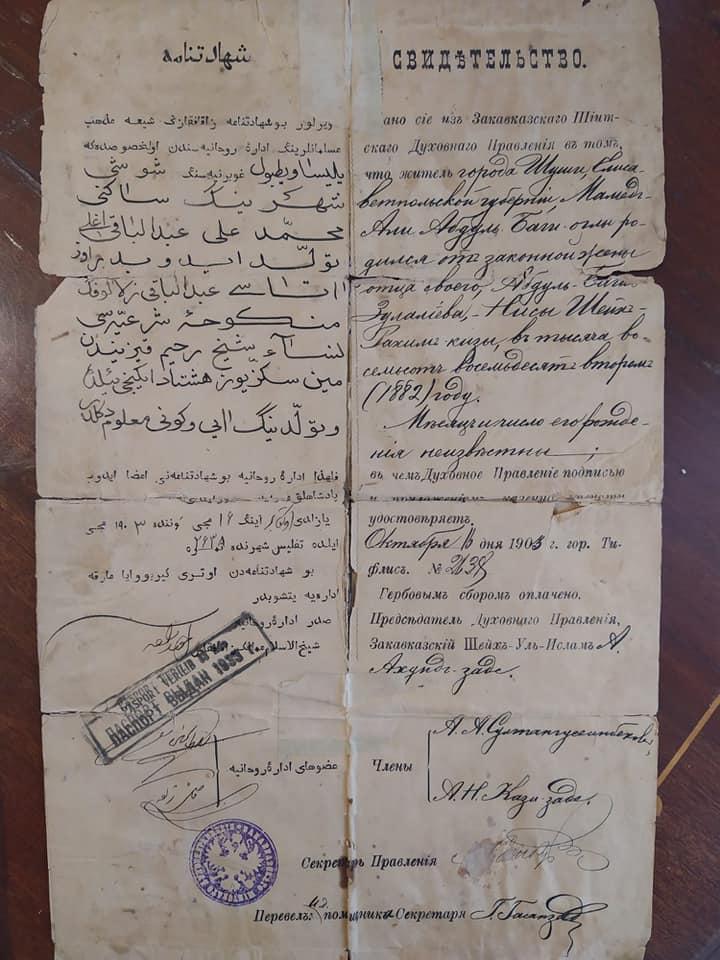 شهادتنامه
ویرلور بو شهادتنامه زاقافقازی شیعه مذهب
مسلمانلرینگ ادارهٔ روحانیه سندن اولخصوصده‌که
یلیساوطپول غوبرنیه‌سنگ شوشی
شهرینک ساکنی
محمّد علی عبدالباقی اغلی
تولّد ایدوبدر اوز
اتاسی عبدالباقی
منکوحهٔ شرعیّه‌سی
نساء شیخ رحیم قیزیندن
مین سکز یوز هشتاد ایکنجی ئیلده
و تولّدینگ ایی و کونی معلوم دگلدی
ادارهٔ روحانیه بو شهادتنامه‌نی امضا ایدوب
یازلدی اینگ ۱۶ مجی گوننده ۱۹۰۳ مجی
ایلده تفلیس شهرنده
بو شهادتنامه‌دن اوتری
اداریه یتشوبدر
صدر ادارهٔ روحانیه
شیخ‌الاسلام
عضوهای ادارهٔ روحانیه
СВИДѢТЕЛЬСТВО.
ано сіе изъ Закавказскаго Шіит-
скаго Духовнаго Правленія въ томъ,
что житель города Шуши, Елиса-
ветпольской губерніи, Мамедъ-
Али Абдулъ-Баги-оглы ро-
дился отъ законной жены
отца своего, Абдулъ-Баги
Зулалiева, - Нисы Шейхъ-
Рахимъ-кизы, въ тысяча во-
семьсотъ восемьдесятъ второмъ
(1882) году.
Мѣсяцъ и число его рожде-
нія неизвѣстны;
въ чемъ Духовное Правленіе подписью
удостовѣряетъ.
Октября 16 дня 1903 г. гор. Ти-
флисъ. №
Гербовымъ сборомъ оплачено.
Предсѣдатель Духовнаго Правленія,
Закавказскій Шейхъ-Уль-Исламъ А.
Ахундъ-заде.
ПАСПОРТ ВЫДАН 1933 г.
Члены
А. А. Султангусейнбековъ,
А. Н. Кази-заде.
Секретарь Правленія
Перевелъ: и.д. помщника Секретаря Г.